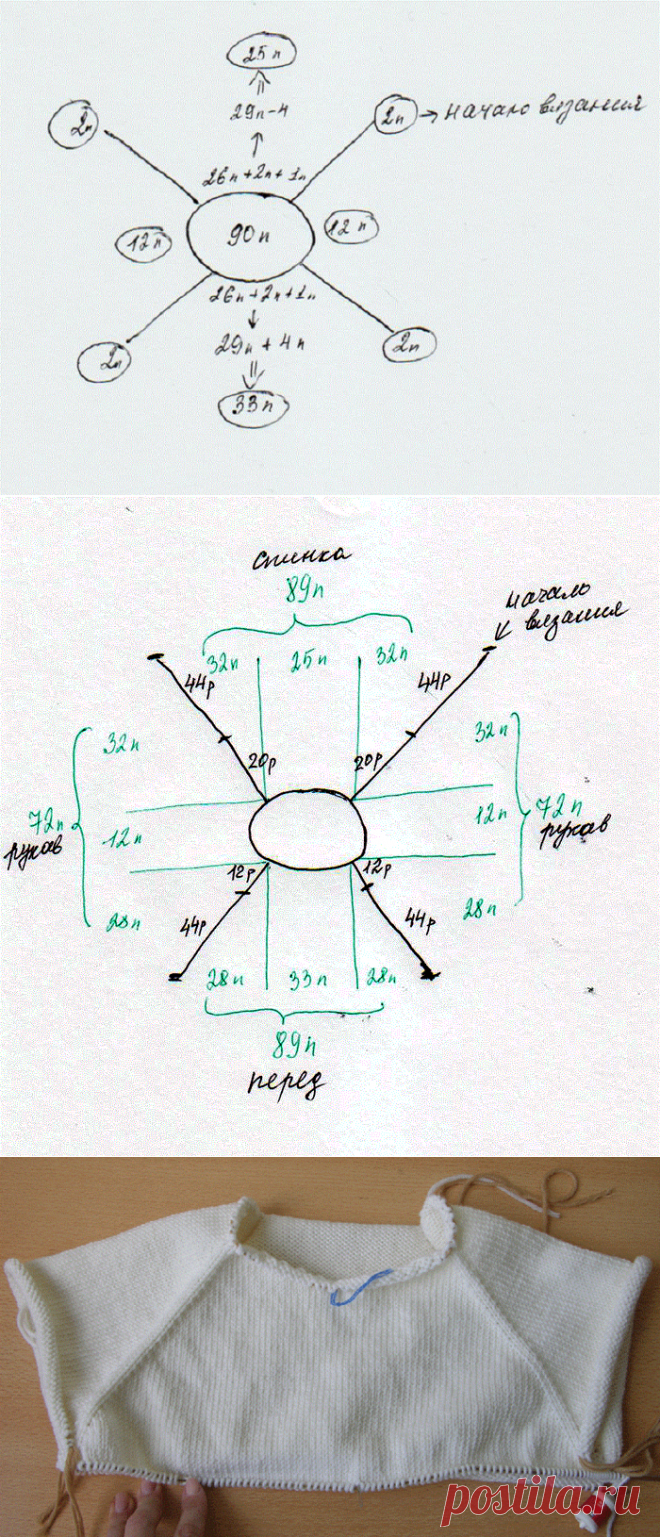 25п
29п-4
2п
2п → начало вязания
26п+2п+1п
12п
90п
12п
26п+2п+1п
29п+4п
2п
2п
33п
спинка
89п
начало
вязания
32п
25п
32п
44р
44р
32п
32п
20р
20р
72п
рукав
12п
12п
72п
рукав
12р
12р
28п
44р
44р
28п
28п
33п
28п
89п
перед
postila.ru